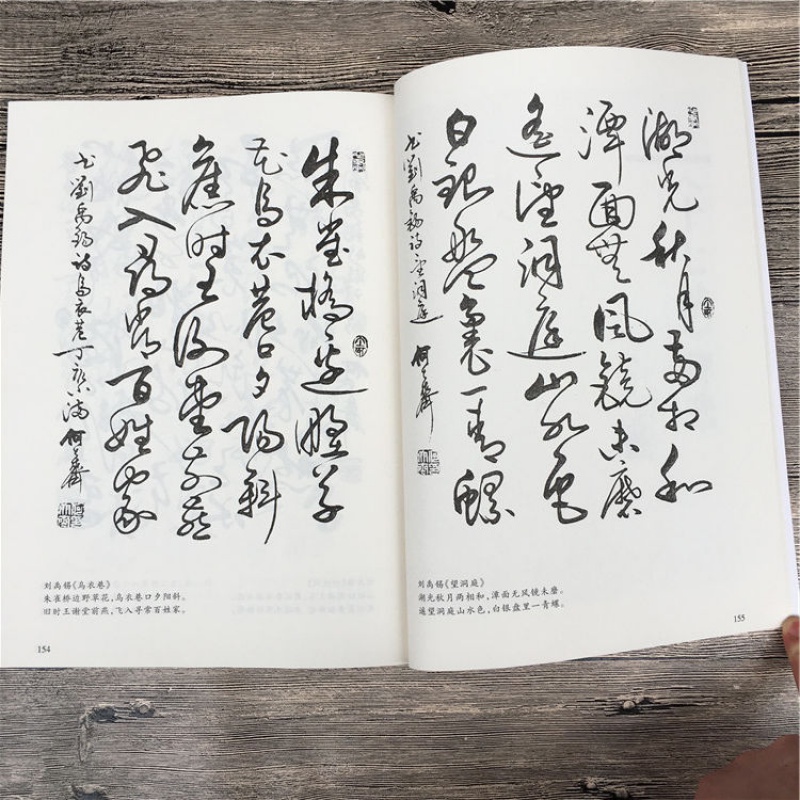 朱雀橋邊野草
花烏衣巷口夕陽斜
舊時王谢堂前燕
飛入尋常百姓家
书劉禹錫詩烏衣巷 何
刘禹锡《乌衣巷》
朱雀桥边野草花，乌衣巷口夕阳斜。
旧时王谢堂前燕，飞入寻常百姓家。
154
湖光秋月兩相和
潭面無風鏡未磨
遙望洞庭山水色
白銀盤裏一青螺
书劉禹錫詩望洞庭 何
刘禹锡《望洞庭》
湖光秋月两相和，潭面无风镜未磨。
遥望洞庭山水色，白银盘里一青螺。
155